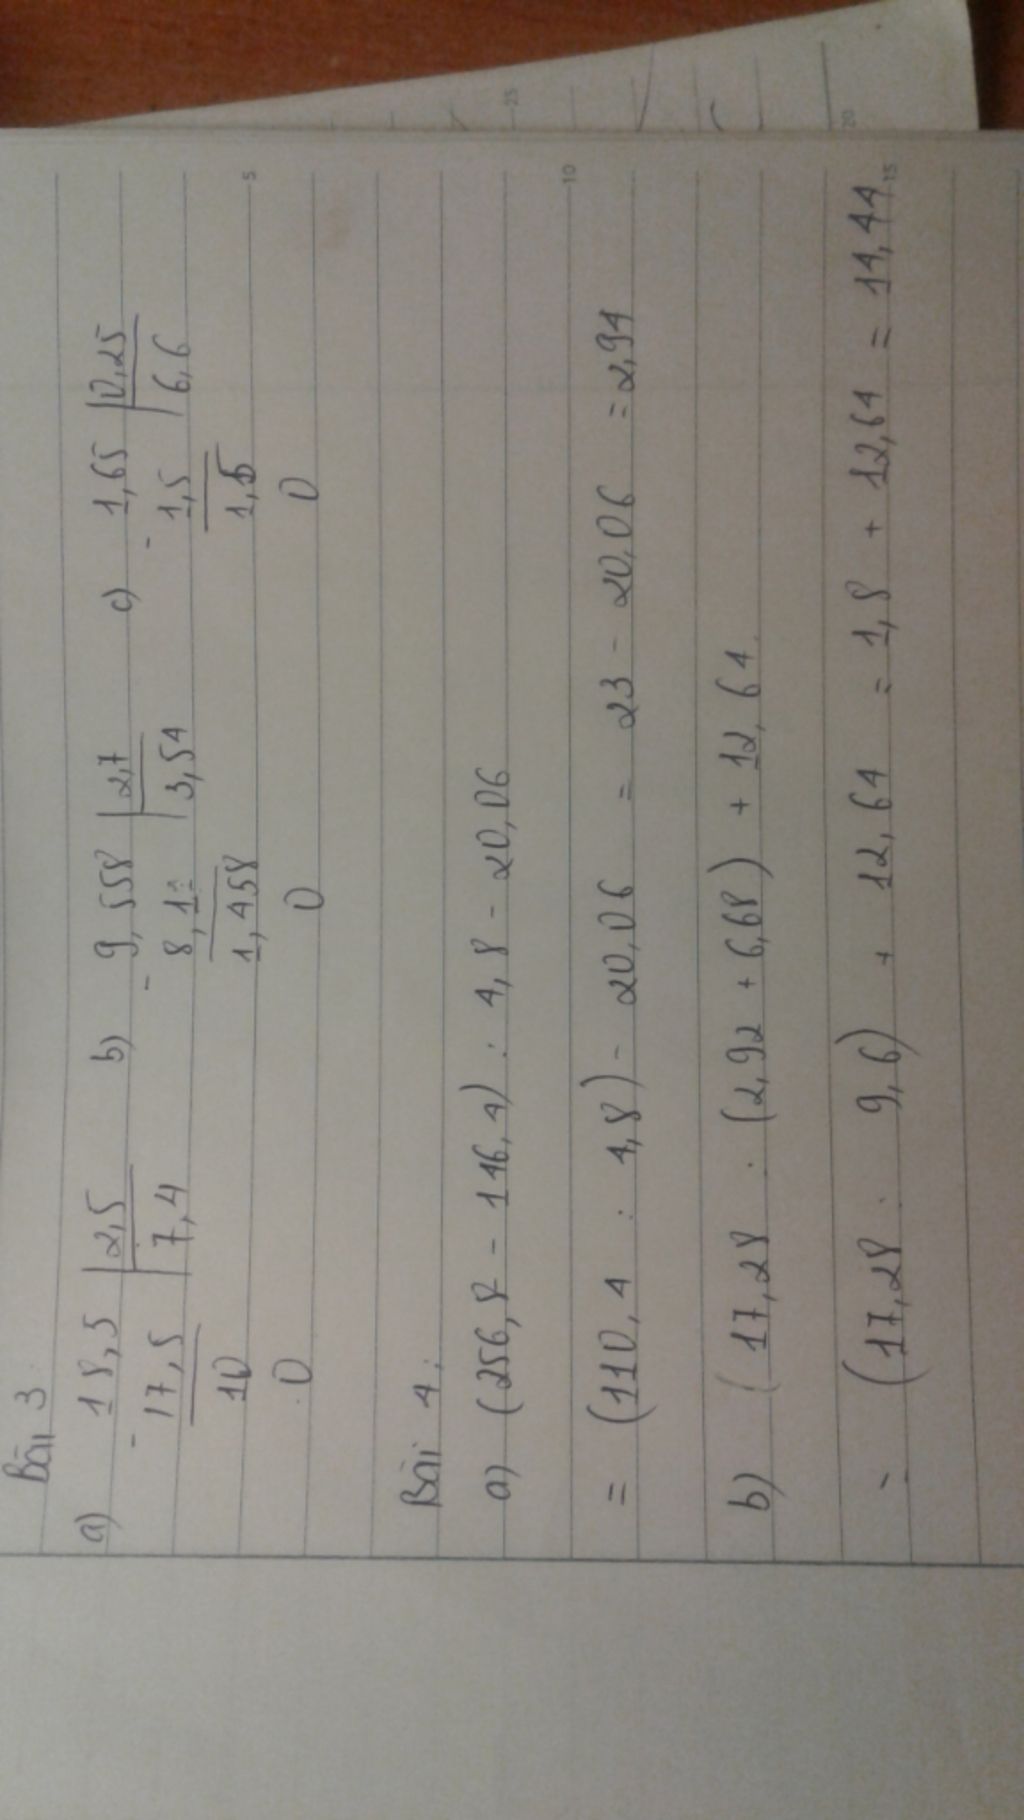 Bài 3
a) 18,5 2,5 b) 9,558 2,7 c) 1,65 0,25
- 17,5 7,4 - 8,1 3,54 - 1,5 6,6
10 1,458 1,5
0 0 0
Bài 4:
a) (256,8 - 146,4) : 4,8 - 20,06
= (110,4 : 4,8) - 20,06 = 23 - 20,06 = 2,94
b) (17,28 : (2,92 + 6,68) + 12,64
= (17,28 : 9,6) + 12,64 = 1,8 + 12,64 = 14,44
5
10
15
20
25